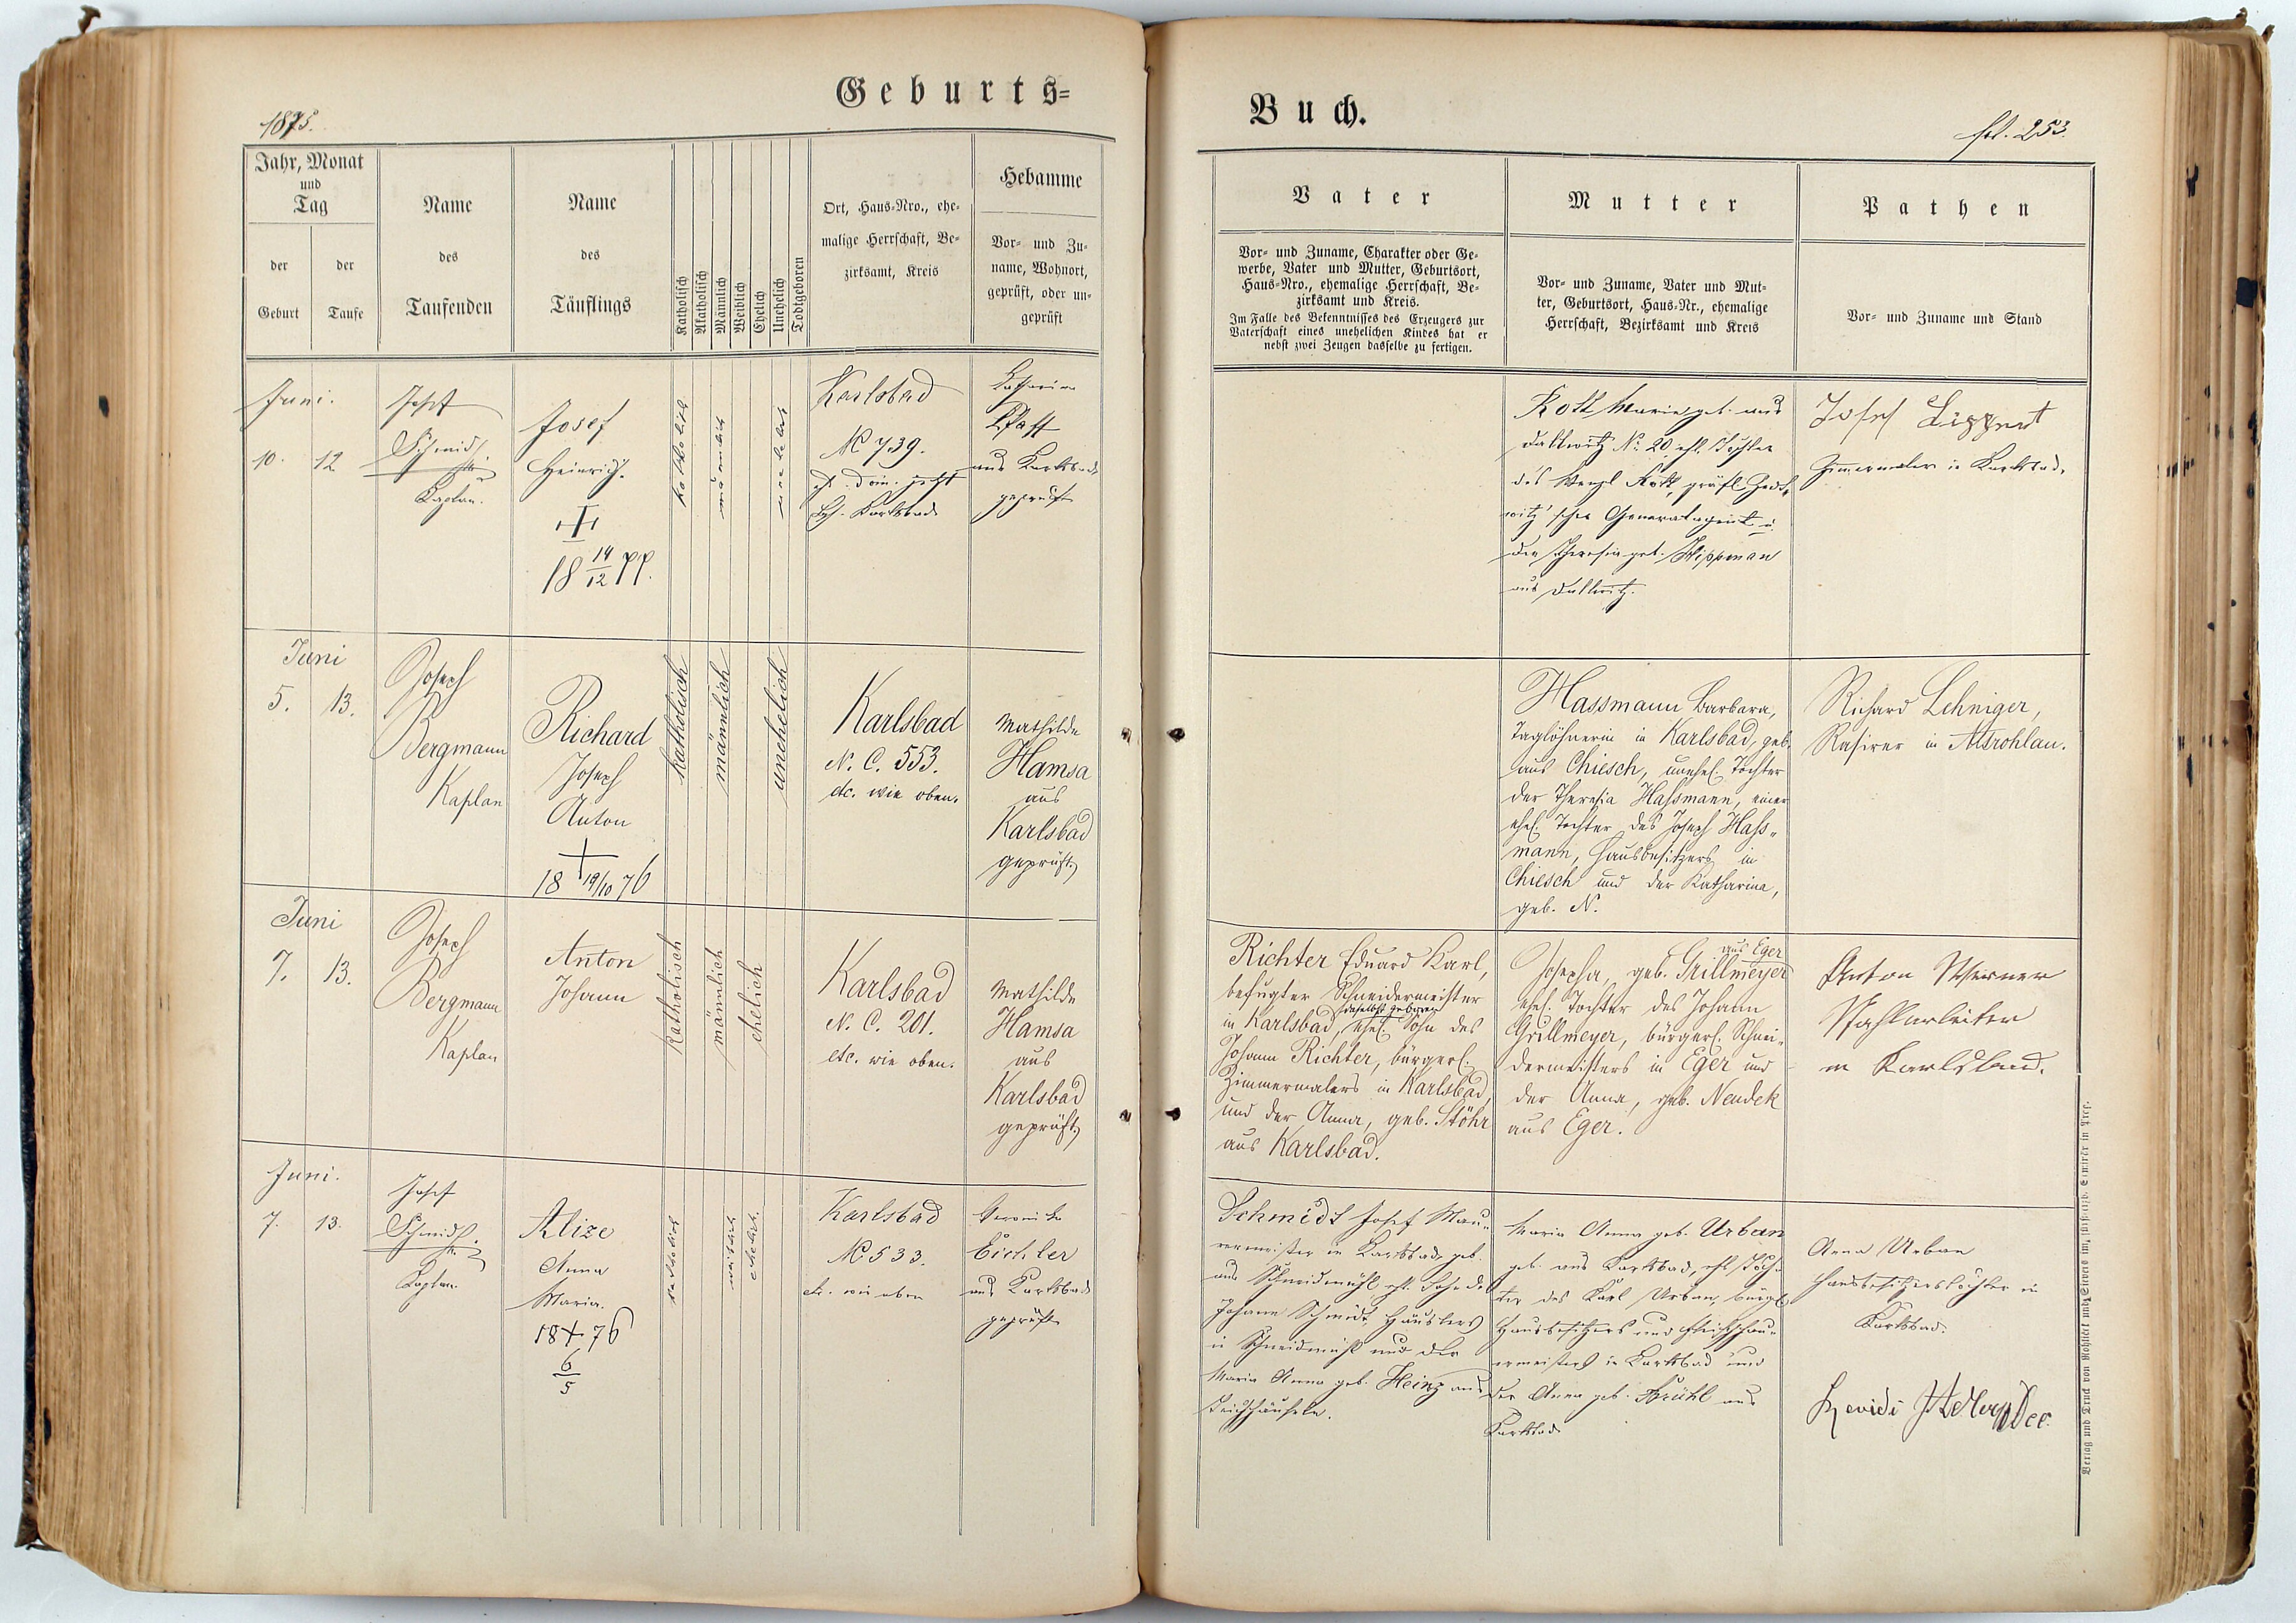 Geburts=
Buch.
1875.
fol. 253.
Jahr, Monat
und
Tag
der
Geburt
der
Taufe
Name
des
Taufenden
Name
des
Täuflings
Katholisch
Akatholisch
Männlich
Weiblich
Ehelich
Unehelich
Todtgeboren
Ort, Haus-Nro., ehe-
malige Herrschaft, Be-
zirksamt, Kreis
Hebamme
Vor- und Zu-
name, Wohnort,
geprüft, oder un-
geprüft
Vater
Vor- und Zuname, Charakter oder Ge-
werbe, Vater und Mutter, Geburtsort,
Haus-Nro., ehemalige Herrschaft, Be-
zirksamt und Kreis.
Im Falle des Bekenntnisses des Erzeugers zur
Vaterschaft eines unehelichen Kindes hat er
nebst zwei Zeugen dasselbe zu fertigen.
Mutter
Vor- und Zuname, Vater und Mut-
ter, Geburtsort, Haus-Nr., ehemalige
Herrschaft, Bezirksamt und Kreis
Pathen
Vor- und Zuname und Stand
Juni.
10. 12
Josef
Schmidt
Kaplan.
Josef
Heinrich.
18 14/12 77.
katholisch
männlich
unehelich
Karlsbad
No 739.
jetzt
Karlsbad
Katharina
Pfaff
aus Karlsbad
geprüft
Rott Maria geb. aus
Dallwitz No. 20, ehl. Tochter
des Wenzl Rott, gräfl. Zedt-
witz'scher Generalagent u.
der Theresia geb. Wippman
aus Dallwitz.
Josef Lippert
Zimmermaler in Karlsbad.
Juni
5. 13.
Joseph
Bergmann
Kaplan
Richard
Joseph
Anton
18 19/10 76
katholisch
männlich
unehelich
Karlsbad
N. C. 553.
etc. wie oben.
Mathilde
Hamsa
aus
Karlsbad
geprüft.
Hassmann Barbara,
Taglöhnerin in Karlsbad, geb.
aus Chiesch, unehel. Tochter
der Theresia Hassmann, einer
ehel. Tochter des Joseph Hass-
mann, Hausbesitzers in
Chiesch und der Katharina,
geb. N.
Richard Lehniger,
Rasirer in Altrohlau.
Juni
7. 13.
Joseph
Bergmann
Kaplan
Anton
Johann
katholisch
männlich
ehelich
Karlsbad
N. C. 201.
etc. wie oben.
Mathilde
Hamsa
aus
Karlsbad
geprüft.
Richter Eduard Karl,
befugter Schneidermeister
daselbst geboren
in Karlsbad, ehel. Sohn des
Johann Richter, bürgerl.
Zimmermalers in Karlsbad,
und der Anna, geb. Stöhr
aus Karlsbad.
aus Eger
Josepha, geb. Grillmeyer
ehel. Tochter des Johann
Grillmeyer, bürgerl. Schnei-
dermeisters in Eger und
der Anna, geb. Neudek
aus Eger.
Anton Werner
Stahlarbeiter
in Karlsbad.
Juni.
7. 13.
Josef
Schmidt
Kaplan.
Alize
Anna
Maria.
18+76
6/5
katholisch
weiblich
ehelich.
Karlsbad
No 533.
etc. wie oben
Veronika
Eichler
aus Karlsbad
geprüft
Schmidt Josef Mau-
rermeister in Karlsbad geb.
aus Schneidmühl ehl. Sohn des
Johann Schmidt, Häuslers
in Schneidmühl und der
Maria Anna geb. Heinz aus
Teichhäuseln.
Maria Anna geb. Urban
geb. aus Karlsbad, ehl. Toch-
ter des Karl Urban, bürgl.
Hausbesitzers und Fleischhau-
ermeisters in Karlsbad und
der Anna geb. Brühl aus
Karlsbad
Anna Urban
Hausbesitzerstochter in
Karlsbad.
Verlag und Druck von